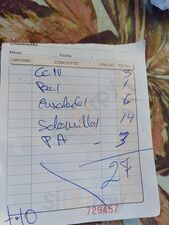 Mesa Fecha
CANTIDAD CONCEPTO PRECIO TOTAL
3
Paul 1
Ensalada 6
Solomillo 14
PA - 3
27
729457